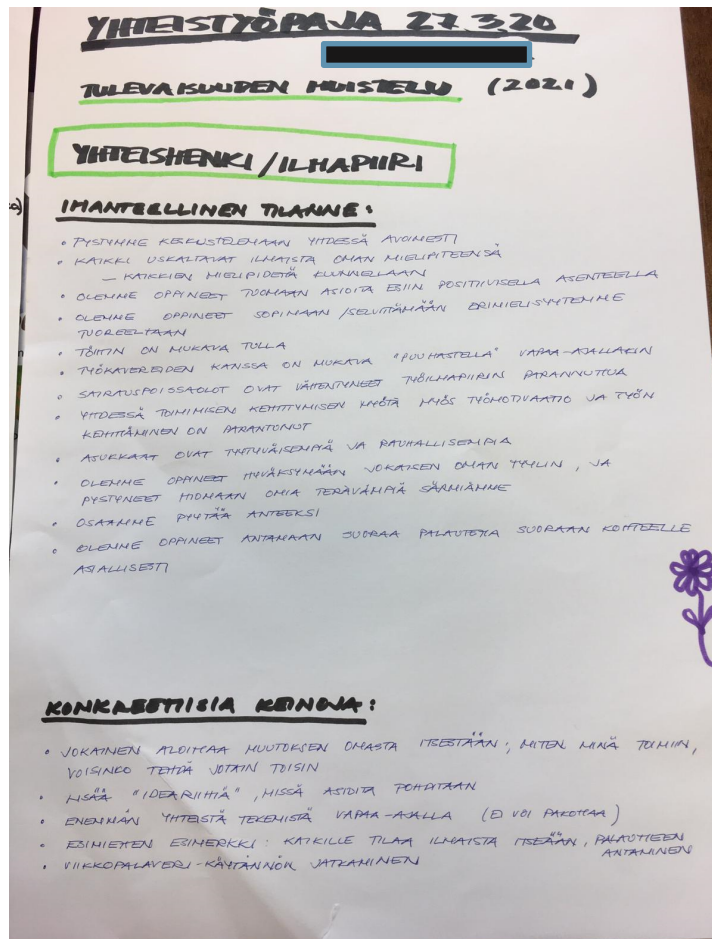 YHTEISTYÖPAJA 27.3.20
TULEVAISUUDEN MUISTELU (2021)
YHTEISHENKI/ILMAPIIRI
IHANTEELLINEN TILANNE:
• PYSTYMME KESKUSTELEMAAN YHDESSÄ AVOIMESTI
• KAIKKI USKALTAVAT ILMAISTA OMAN MIELIPITEENSÄ
– KAIKKIEN MIELIPIDETÄ KUUNNELLAAN
• OLEMME OPPINEET TUOMAAN ASIOITA ESIIN POSITIIVISELLA ASENTEELLA
• OLEMME OPPINEET SOPIMAAN/SELVITTÄMÄÄN ERIMIELISYYTEMME
TUOREELTAAN
• TÖIHIN ON MUKAVA TULLA
• TYÖKAVEREIDEN KANSSA ON MUKAVA "PUUHASTELLA" VAPAA-AJALLAKIN
• SAIRAUSPOISSAOLOT OVAT VÄHENTYNEET TYÖILMAPIIRIN PARANNUTTUA
• YHDESSÄ TOIMIMISEN KEHITTYMISEN MYÖTÄ MYÖS TYÖMOTIVAATIO JA TYÖN
KEHITTÄMINEN ON PARANTUNUT
• ASUKKAAT OVAT TYYTYVÄISEMPIÄ JA RAUHALLISEMPIA
• OLEMME OPPINEET HYVÄKSYMÄÄN JOKAISEN OMAN TYYLIN, JA
PYSTYNEET HIOMAAN OMIA TERÄVÄMPIÄ SÄRMIÄMME
• OSAAMME PYYTÄÄ ANTEEKSI
• OLEMME OPPINEET ANTAMAAN SUORAA PALAUTETTA SUORAAN KOHTEELLE
ASIALLISESTI
KONKREETTISIA KEINOJA:
• JOKAINEN ALOITTAA MUUTOKSEN OMASTA ITSESTÄÄN; MITEN MINÄ TOIMIIN,
VOISINKO TEHDÄ JOTAIN TOISIN
• LISÄÄ "IDEARIIHIÄ", MISSÄ ASIOITA POHDITAAN
• ENEMMÄN YHTEISTÄ TEKEMISTÄ VAPAA-AJALLA (EI VOI PAKOTTAA)
• ESIMIEHEN ESIMERKKI: KAIKILLE TILAA ILMAISTA ITSEÄÄN, PALAUTTEEN
ANTAMINEN
• VIIKKOPALAVERI-KÄYTÄNNÖN JATKAMINEN